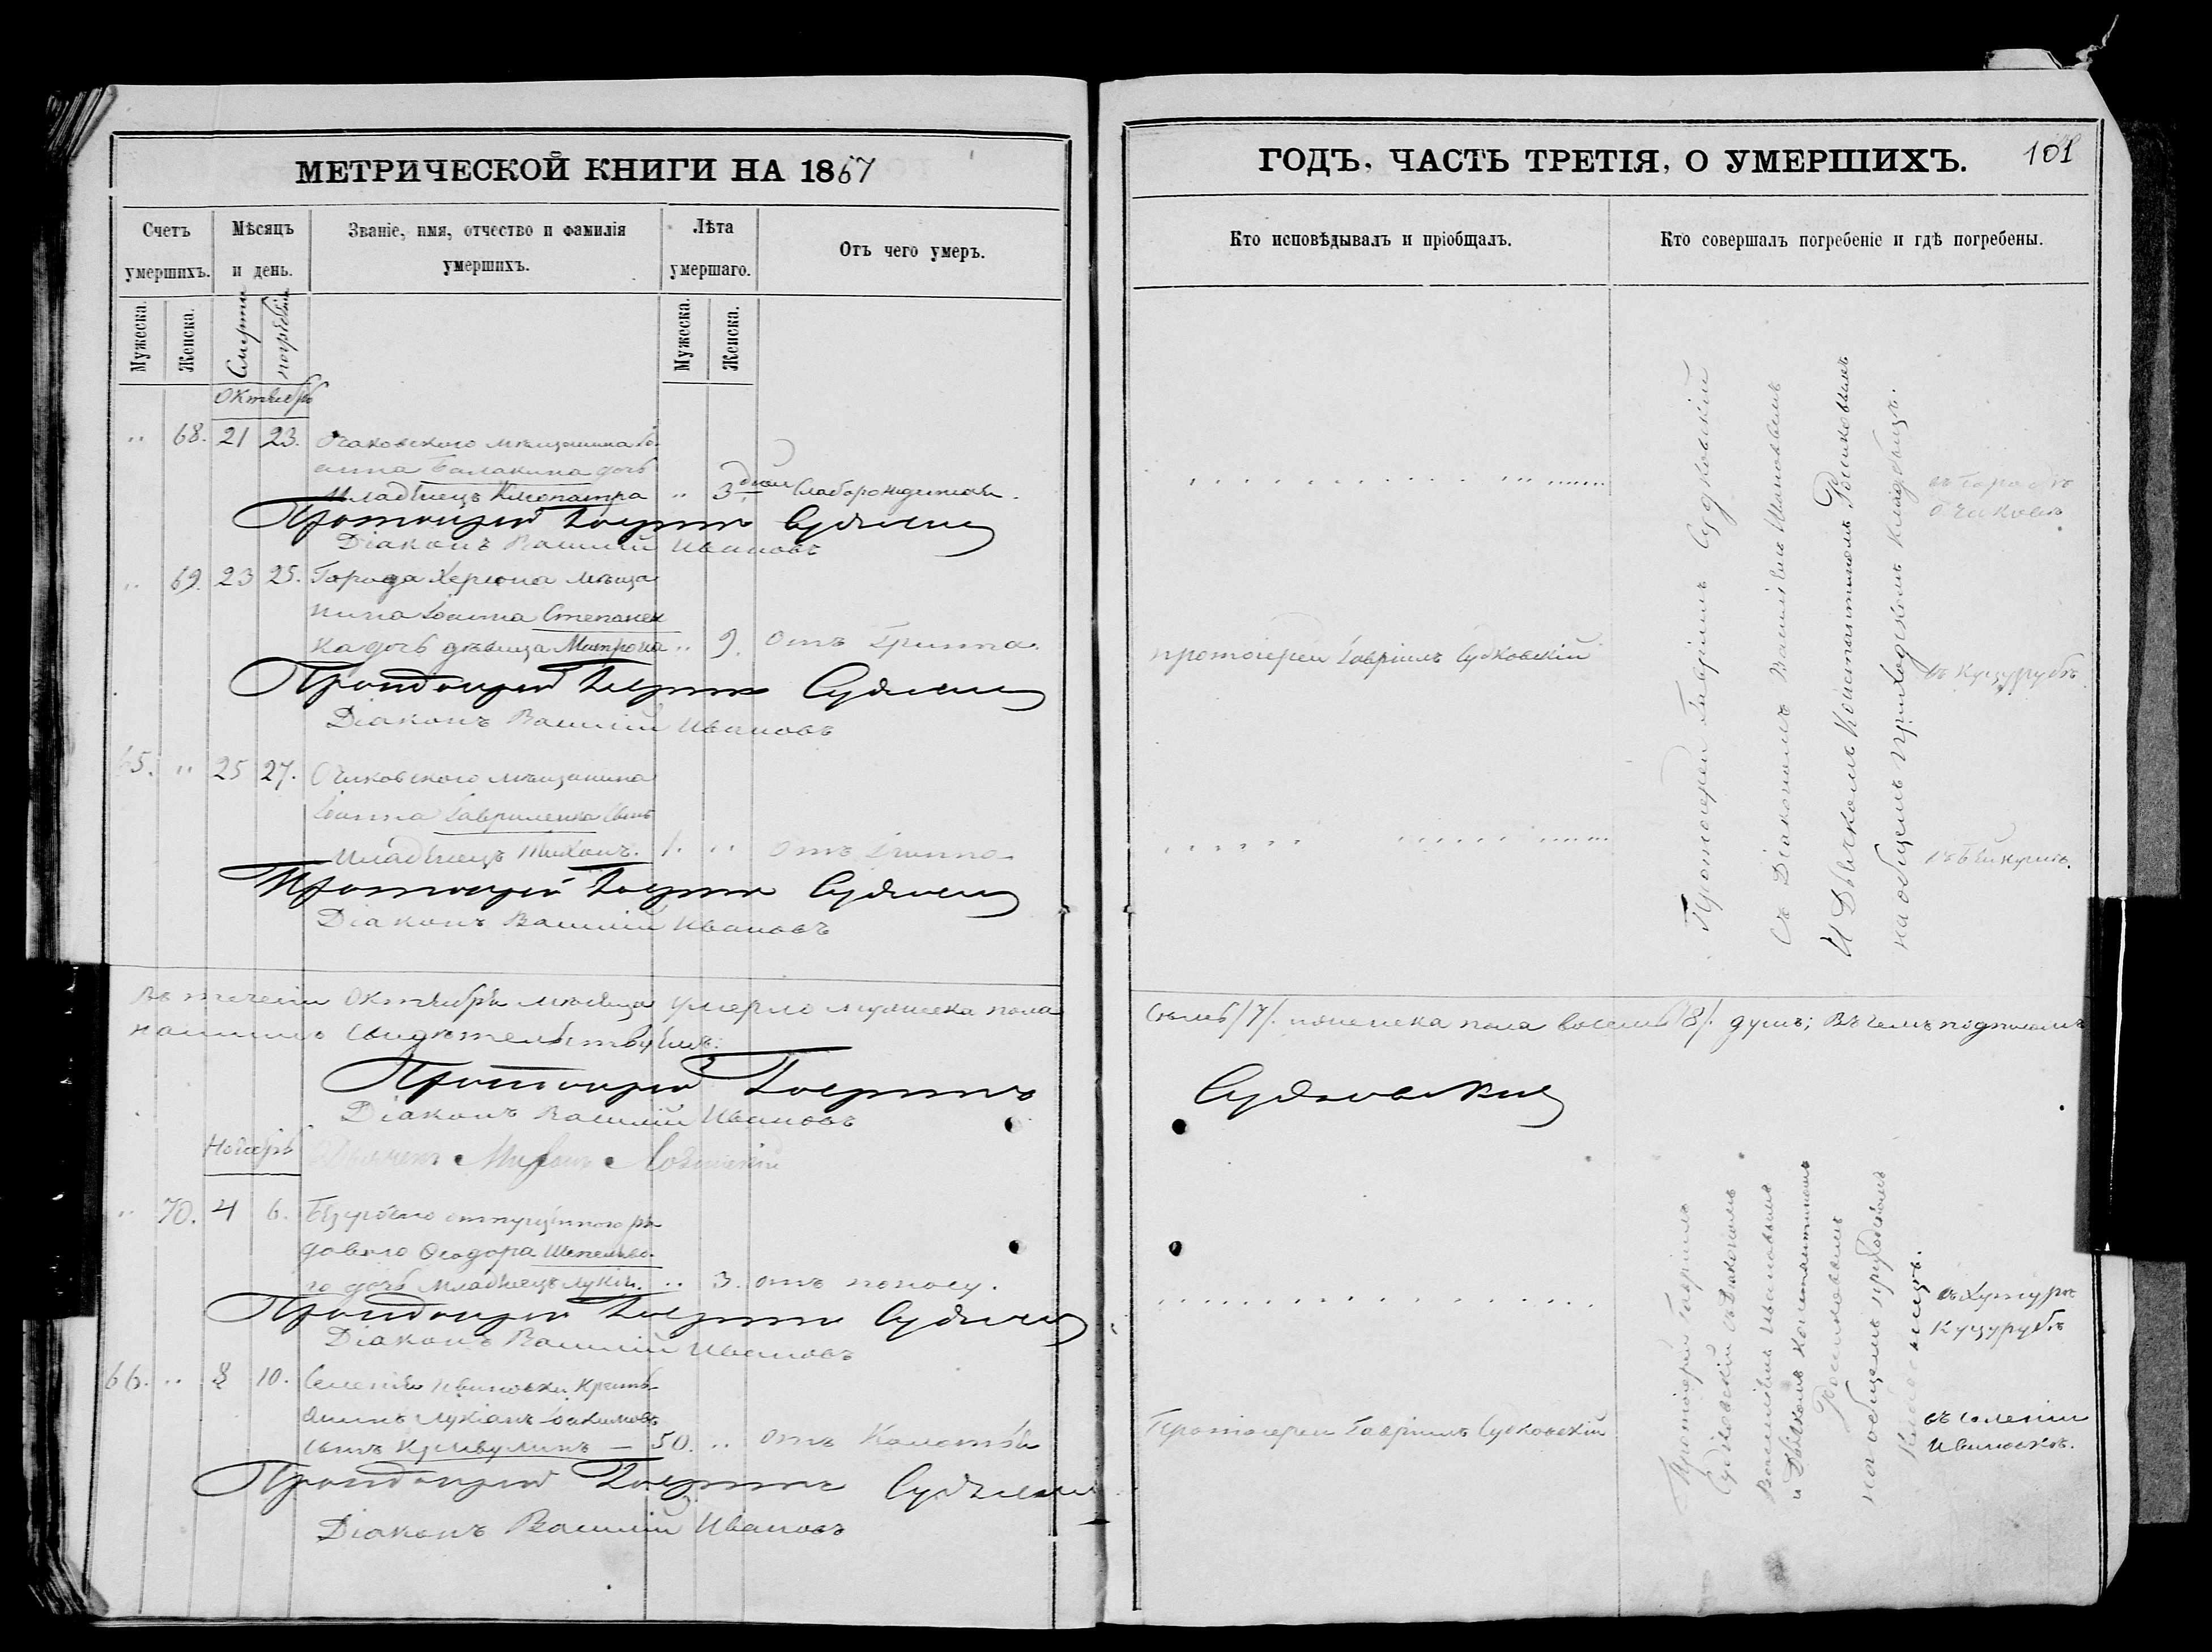 МЕТРИЧЕСКОЙ КНИГИ НА 1867
Счетъ умершихъ.
Мѣсяцъ и день.
Званіе, имя, отчество и фамилія умершихъ.
Лѣта умершаго.
Отъ чего умеръ.
Мужеска.
Женска.
Смерти
погребѣнія
Мужеска.
Женска.
Октябрь
68. 21 23. Очаковского мѣщанина Іо-
анна Балакина дочь
Младѣнецъ Клеопатра 3 дней Слаборожденная.
Протоіерей Гавріилъ Судковскій
Діаконъ Василій Ивановъ
69. 23 25. Города Херсона мѣща
нина Іоанна Степанен
ка дочь дѣвица Матрона 9. отъ Гриппа.
Протоіерей Гавріилъ Судковскій
Діаконъ Василій Ивановъ
65. 25 27. Очаковского мѣщанина
Іоанна Гавриленка сынъ
Младѣнецъ Тихонъ. 1. отъ Гриппа
Протоіерей Гавріилъ Судковскій
Діаконъ Василій Ивановъ
Въ теченіи Октября мѣсяца умерло мужеска пола
нашимъ свидѣтельствуемъ:
Протоіерей Гавріилъ
Діаконъ Василій Ивановъ
Ноябрь
70. 4 6. отпущенного ря
дового Ѳеодора
го дочь Младѣнецъ 3. отъ поносу.
Протоіерей Гавріилъ Судковскій
Діаконъ Василій Ивановъ
66. 8 10. Селенія Ивановки Кресть-
янинъ Лукіанъ Іоакимовъ
сынъ — 50. отъ
Протоіерей Гавріилъ Судковскій
Діаконъ Василій Ивановъ
ГОДЪ, ЧАСТЬ ТРЕТІЯ, О УМЕРШИХЪ.
101
Кто исповѣдывалъ и пріобщалъ.
Кто совершалъ погребеніе и гдѣ погребены.
Протоіерей Гавріилъ Судковскій
съ Діакономъ Василіемъ Ивановымъ
И Дьячкомъ Константиномъ
на общемъ приходскомъ кладбищѣ.
въ Городѣ
Очаковѣ
протоіерей Гавріилъ Судковскій
въ Куцурубѣ
въ Бейкушѣ.
семь /7/. женска пола восемь /8/. душъ; Въ чемъ подписомъ
Судковскій
Протоіерей Гавріилъ
Судковскій съ Діакономъ
Василіемъ Ивановымъ
и Дьячкомъ Константиномъ
на общемъ приходскомъ
кладбищѣ.
въ Хуторѣ
Куцурубѣ
Протоіерей Гавріилъ Судковскій
въ селеніи
Ивановкѣ.